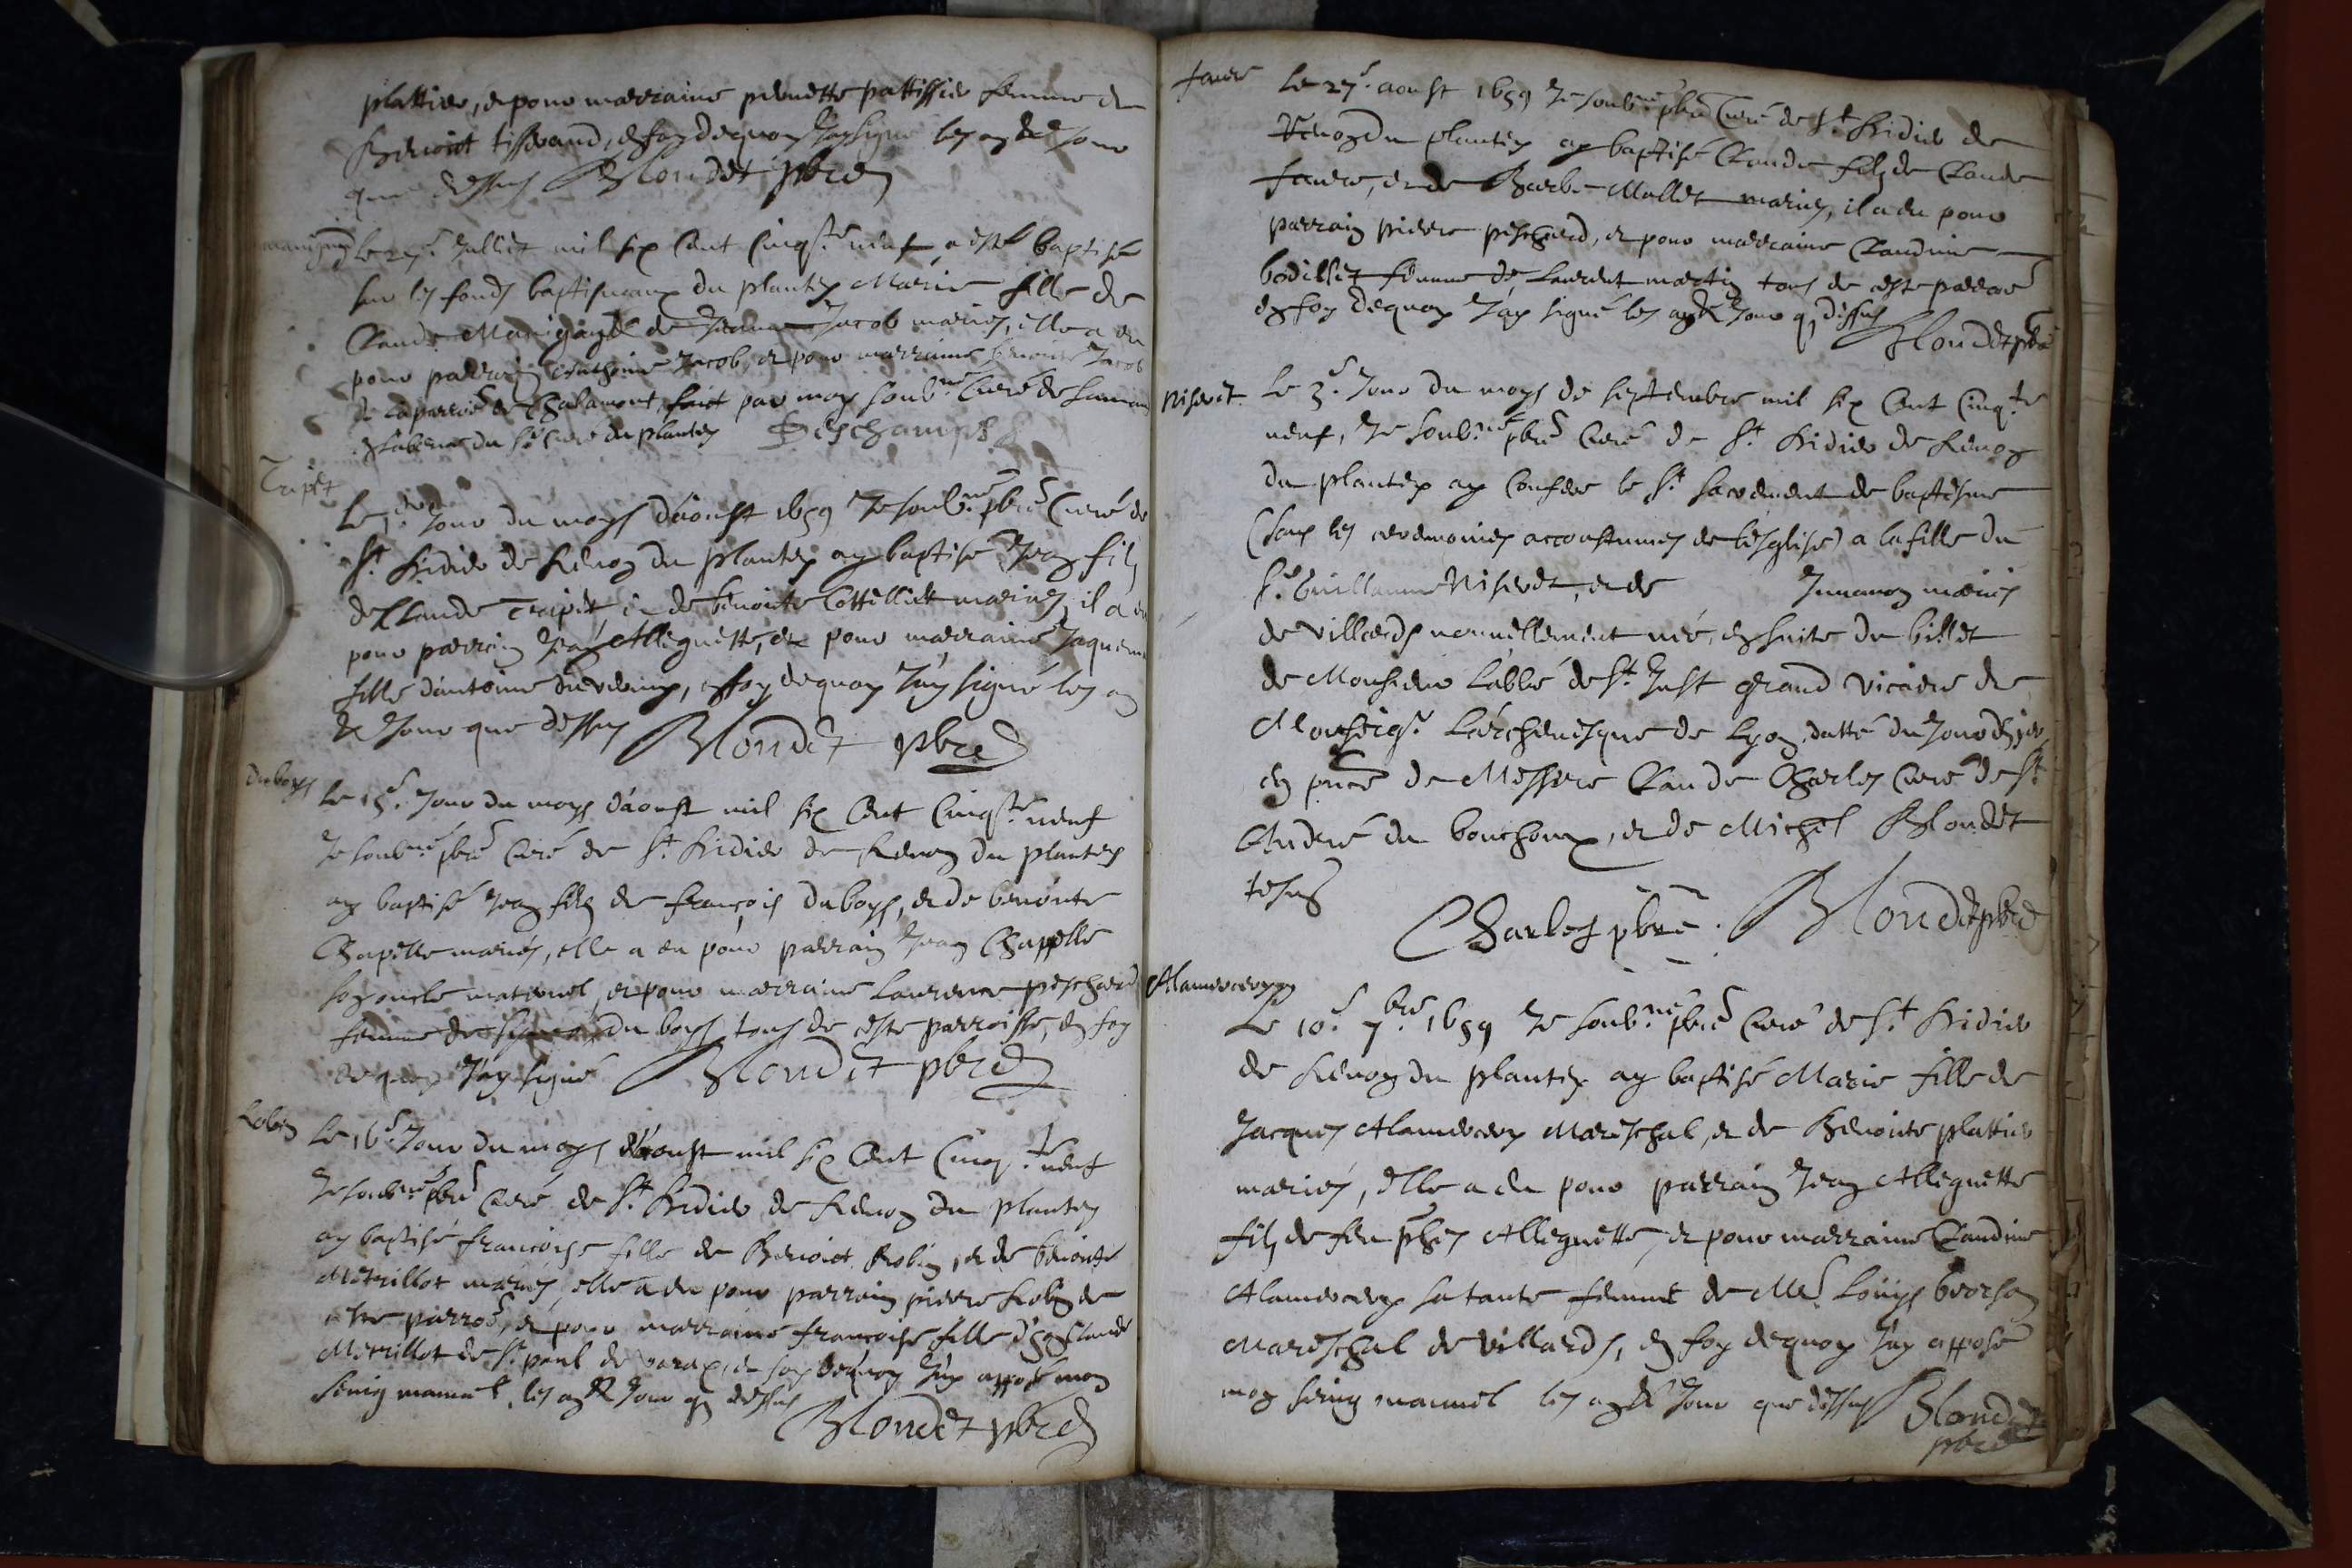 plattier, et pour marraine pernette pattissier femme de
Benoist tisserand, en foy dequoy J'ay signé les an et Jour
que dessus Blondet pbre
Le 27e Julliet mil six Cent Cinqte neuf a esté baptisé
sur les fonds baptismaux du plantey Marie fille de
Claude et de Jeanne Jacob mariés, elle a eu
pour parrain Anthoine Jacob, et pour marraine benoite Jacob
de la parroë de Chalamont, faict par moy soubné Curé de
en l'absence du Sr Curé du plantey Deschamps
Tripet
Le Jour du moys d'aoust 1659 Je soubné pbre Curé de
St Didier de Renon du plantey ay baptisé Jean filz
de Claude Tripet et de benoite Cottillict mariés, il a eu
pour parrain Jean Alleguette, et pour marraine Jaquema
fille d'antoine, en foy dequoy J'ay signé les an
et Jour que dessus Blondet pbre
Duboys
Le 15e Jour du moys d'aoust mil six Cent Cinqte neuf
Je soubné pbre Curé de St Didier de Renon du plantey
ay baptisé Jean filz de françois duboys, et de benoite
Chapelle mariés, elle a eu pour parrain Jean Chappelle
son oncle maternel, et pour marraine Laurence peschard
femme de du boys, tous de ceste parroisse, en foy
de quoy J'ay signé Blondet pbre
Robin
Le 16e Jour du moys d'aoust mil six Cent Cinqte neuf
Je soubné pbre Curé de St Didier de Renon du plantey
ay baptisé françoise fille de Benoict Robin, et de benoite
Metrillot mariés, elle a eu pour parrain pierre Robin de
parroë, et pour marraine françoise fille d'hon Claude
Metrillot de St paul de varax, en foy dequoy J'ay apposé mon
seing manuel, les an et Jour que dessus
Blondet pbre
favre
Le 27e aoust 1659 Je soubné pbre Curé de St Didier de
Renon du plantey ay baptisé Claude filz de Claude
favre, et de Barbe Mallet mariés, il a eu pour
parrain pierre peschard, et pour marraine Claudine
bodillet femme de Laurent martin tous de ceste parroë
en foy dequoy J'ay signé les an et Jour q dessus
Blondet pbre
Niseret
Le 3e Jour du moys de septembre mil six Cent Cinqte
neuf, Je soubné pbre Curé de St Didier de Renon
du plantey ay conferé le St sacrement de baptesme
(sans les ceremonies accoustumés de l'esglise) a la fille du
Sr Guillaume Niseret, et de Juvanon mariés
de villards nouvellement née, en suite du billet
de Monsieur L'abbé de St Just grand vicaire de
Monseigr L'archevesque de Lyon, datté du Jour d'hier,
en pnce de Messire Claude Charles Curé de St
André du bouchoux, et de Michel Blondet
tesms
Charles pbre. Blondet pbre
Alamercery
Le 10e 7bre 1659 Je soubné pbre Curé de St Didier
de Renon du plantey ay baptisé Marie fille de
Jacques Alamercery Mareschal, et de Benoite plattier
mariés, elle a eu pour parrain Jean Alleguette
filz de feu phes Alleguette, et pour marraine Claudine
Alamercery sa tante femme de Me Louys
Mareschal de villards, en foy dequoy J'ay apposé
mon seing manuel les an et Jour que dessus Blondet
pbre